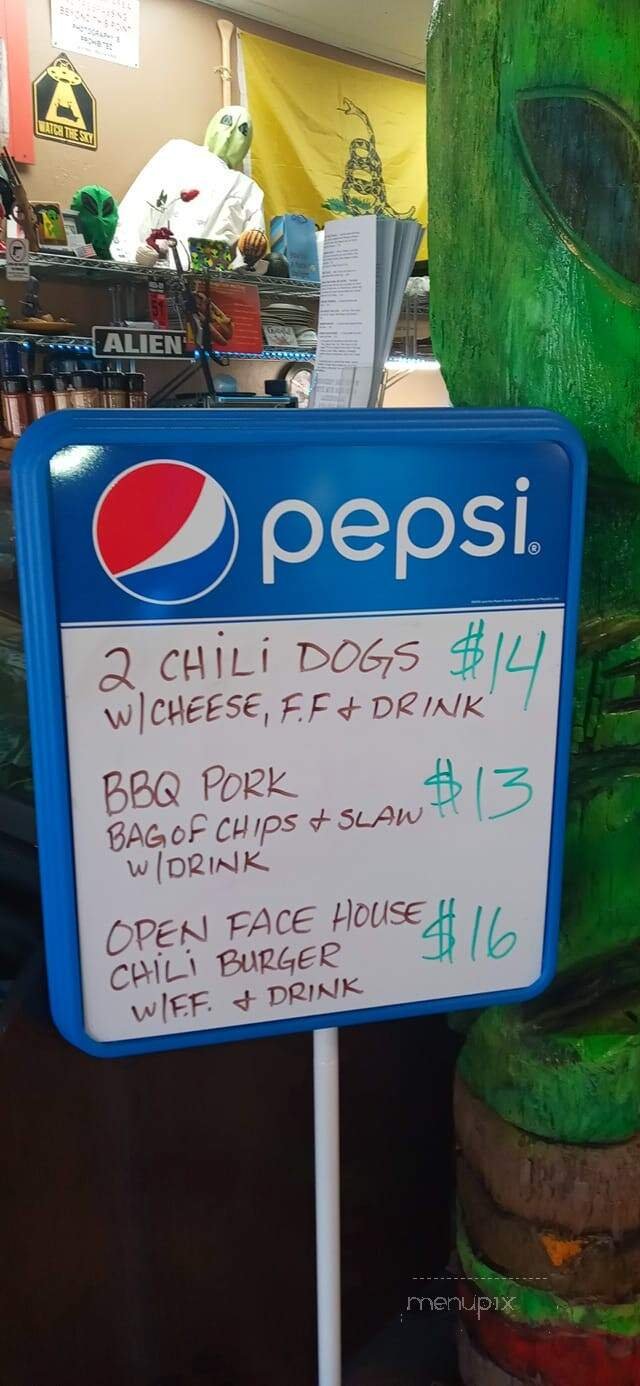 BEYOND THIS POINT
PHOTOGRAPHY IS
PROHIBITED
WATCH THE SKY
ALIEN
pepsi®
2 CHiLi DOGS $14
W/CHEESE, F.F & DRINK
BBQ PORK $13
BAG OF CHIPS & SLAW
W/DRINK
OPEN FACE HOUSE $16
CHiLi BURGER
W/F.F. & DRINK
menupix